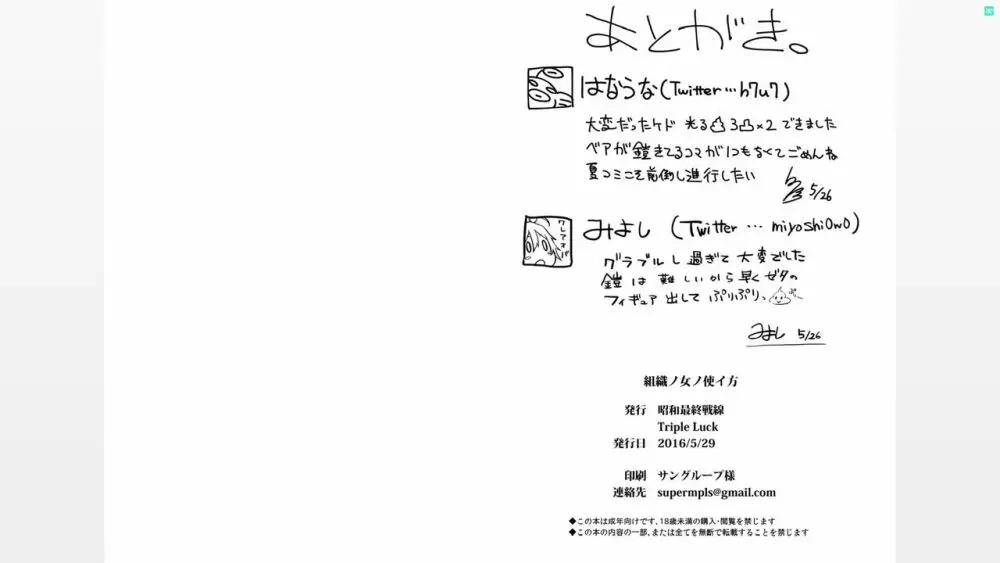 あとがき。
はなうな(Twitter…h7u7)
大変だったケド 光る凸3凸×2 できました
ベアが鎧きてるコマが1つもなくてごめんね
夏コミこそ前倒し進行したい
5/26
みよし (Twitter … miyoshi0w0)
グラブルし過ぎて大変でした
鎧は難しいから早くゼタの
フィギュア出して ぷりぷり、
みよし 5/26
組織ノ女ノ使イ方
発行 昭和最終戦線
Triple Luck
発行日 2016/5/29
印刷 サングループ様
連絡先 supermpls@gmail.com
◆この本は成年向けです。18歳未満の購入・閲覧を禁じます
◆この本の内容の一部、または全てを無断で転載することを禁じます